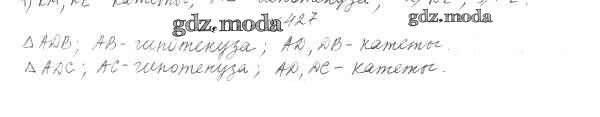 gdz.moda 427 gdz.moda
△ADB; AB - гипотенуза; AD, DB - катеты.
△ADC; AC - гипотенуза; AD, DC - катеты.